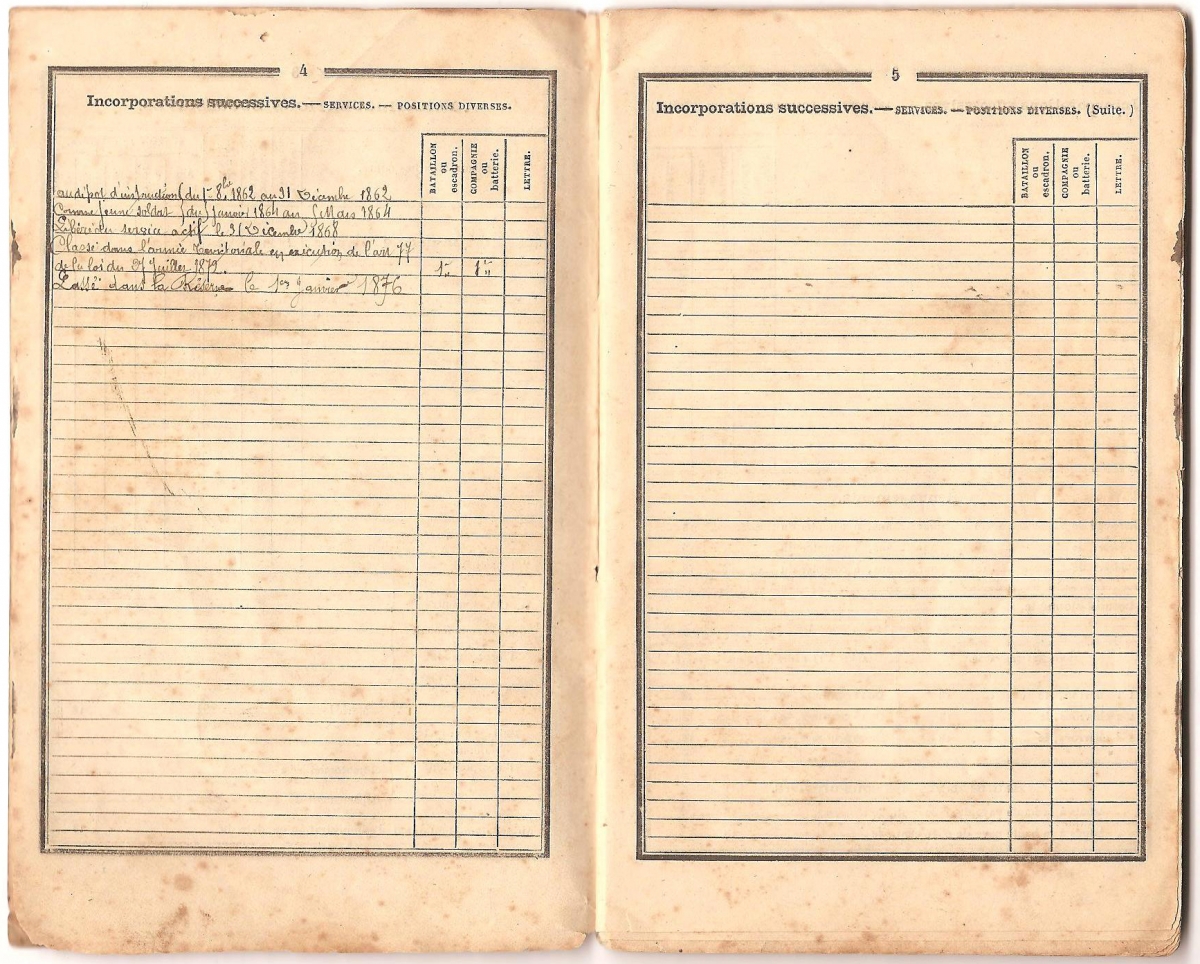 4
Incorporations successives. — SERVICES. — POSITIONS DIVERSES.
BATAILLON ou escadron.
COMPAGNIE ou batterie.
LETTRE.
au dépot d'instruction (du 1er 8bre 1862 au 31 Décembre 1862
Comme jeune soldat (du Janvier 1864 au Mars 1864
Libéré du service actif le 31 Décembre 1868
Classé dans l'armée territoriale en exécution de l'art 77
de la loi du 27 Juillet 1872.
Passé dans la Réserve le 1er Janvier 1876
5
Incorporations successives. — SERVICES. — POSITIONS DIVERSES. (Suite.)
BATAILLON ou escadron.
COMPAGNIE ou batterie.
LETTRE.